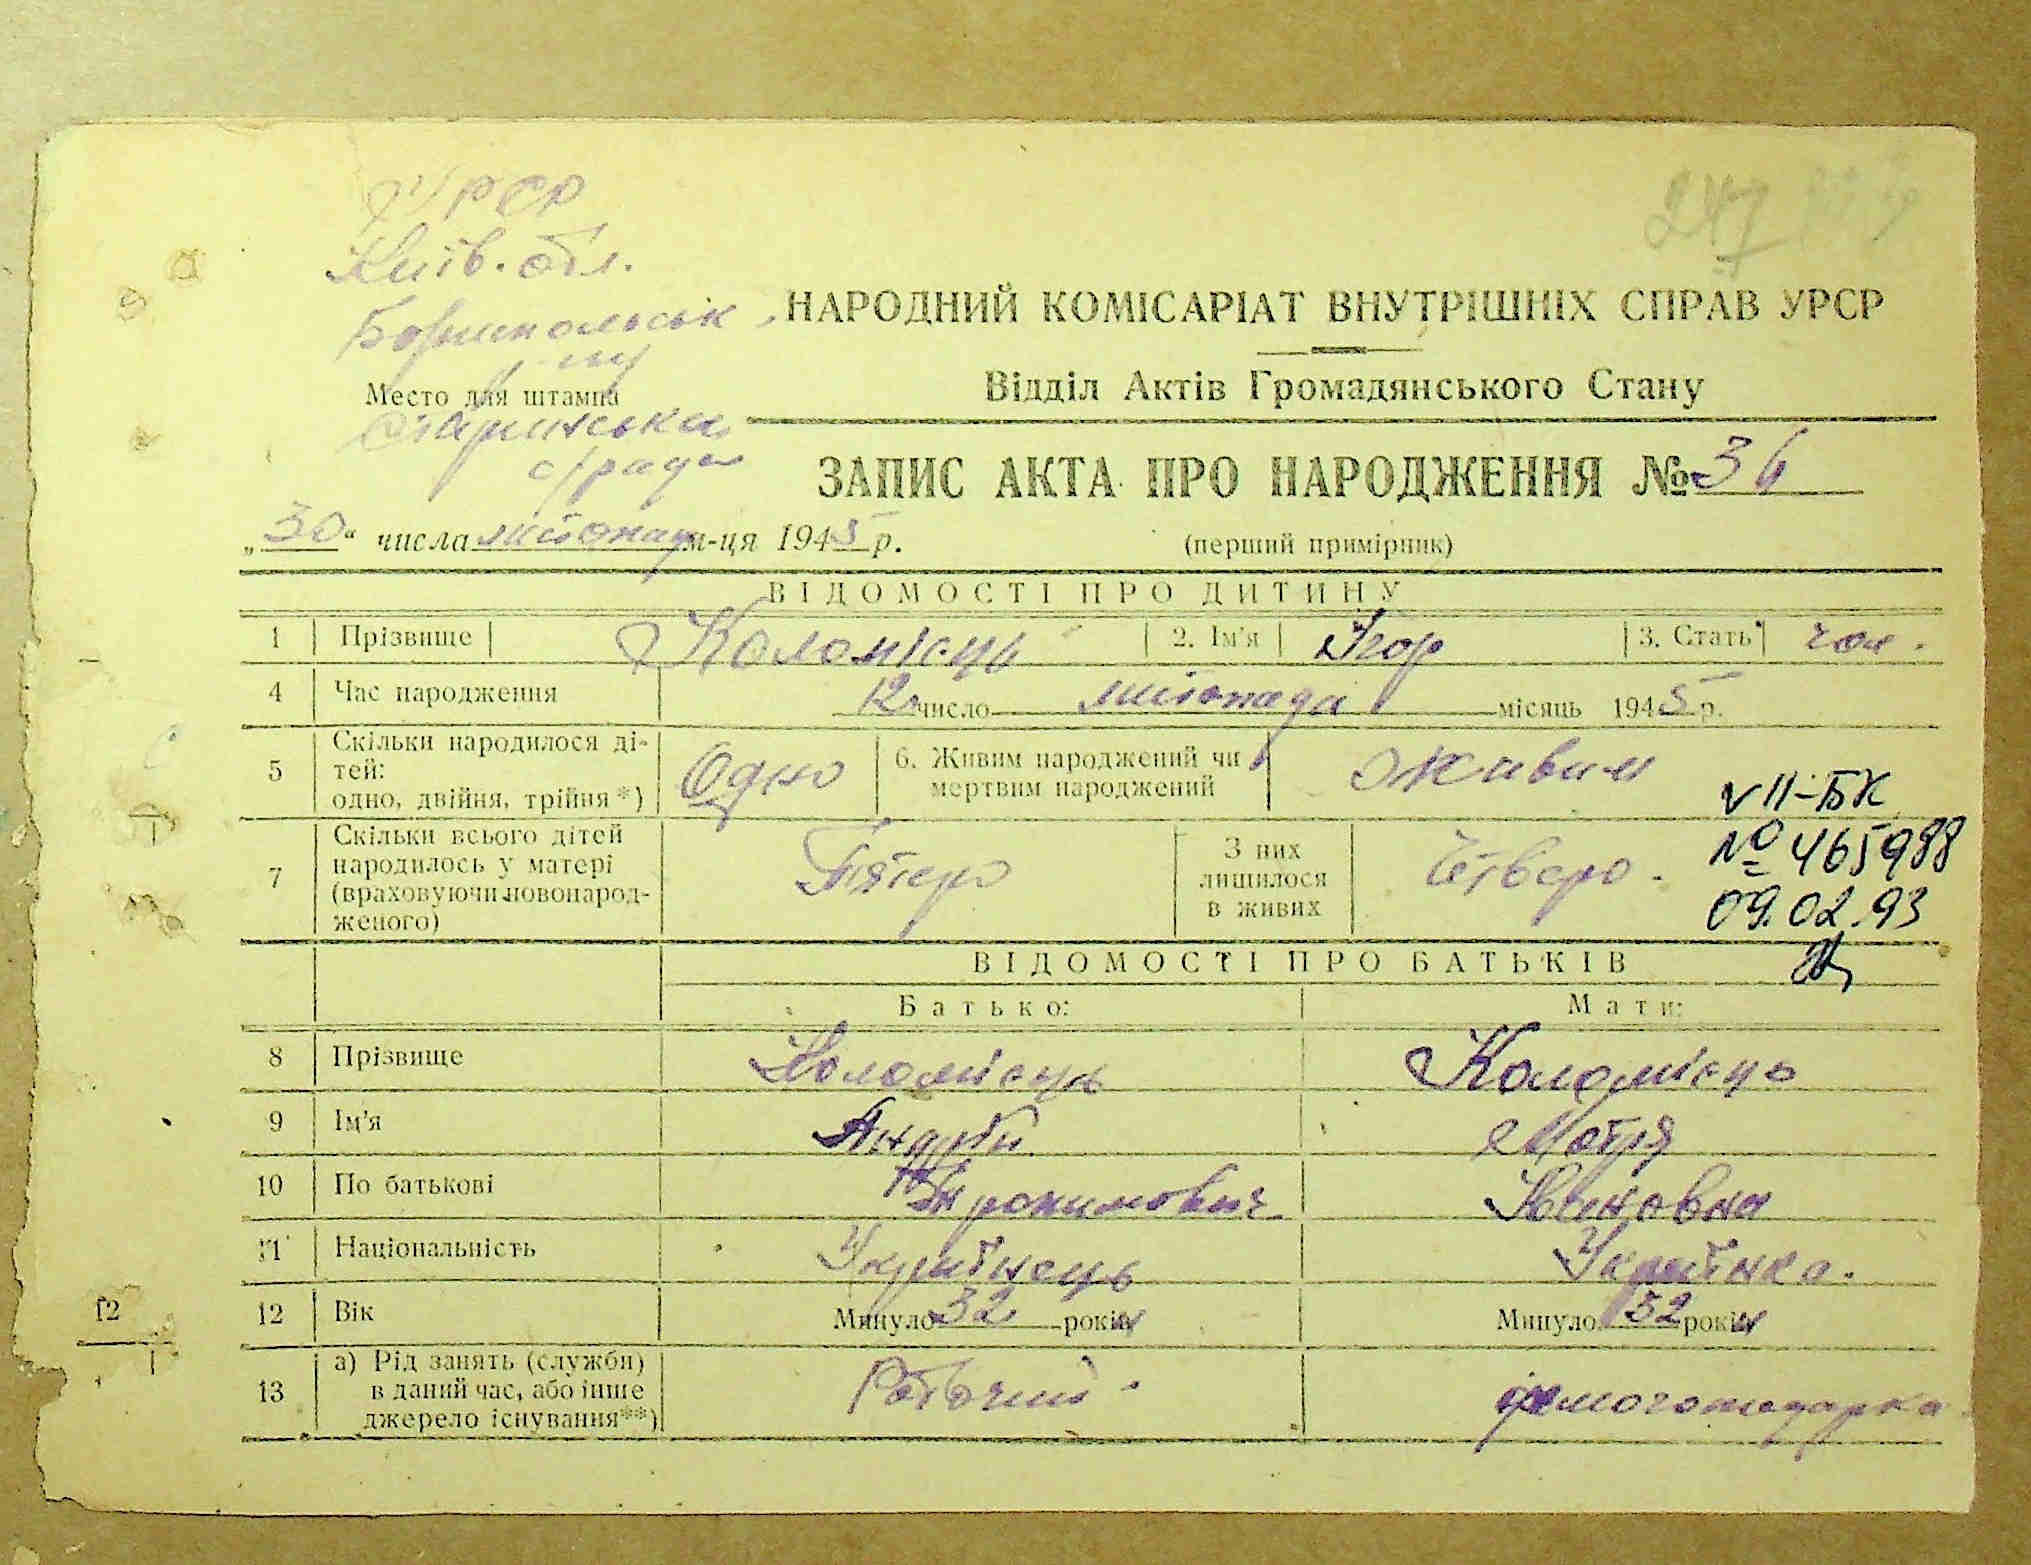 УРСР
Київ. обл.
Бориспольськ
247
НАРОДНИЙ КОМІСАРІАТ ВНУТРІШНІХ СПРАВ УРСР
Место для штампа
Відділ Актів Громадянського Стану
Старинська
с/рада
ЗАПИС АКТА ПРО НАРОДЖЕННЯ №
„30“ числа листопад м-ця 1945 р.
(перший примірник)
ВІДОМОСТІ ПРО ДИТИНУ
1 Прізвище Коломієць 2. Ім'я Ігор 3. Стать чол.
4 Час народження 12 число листопада місяць 1945 р.
5 Скільки народилося ді-
тей:
одно, двійня, трійня*) Одно 6. Живим народжений чи
мертвим народжений Живим
VII-БК
№ 465988
09.02.93
7 Скільки всього дітей
народилось у матері
(враховуючи новонарод-
женого) Пятеро З них
лишилося
в живих Четверо.
ВІДОМОСТІ ПРО БАТЬКІВ
Батько: Мати:
8 Прізвище Коломієць Коломієць
9 Ім'я Андрій Мотря
10 По батькові Трохимович Івановна
11 Національність Українець Українка.
12 Вік Минуло 32 роки Минуло 32 роки
12
1
13 а) Рід занять (служби)
в даний час, або інше
джерело існування**) Робочий домогосподарка